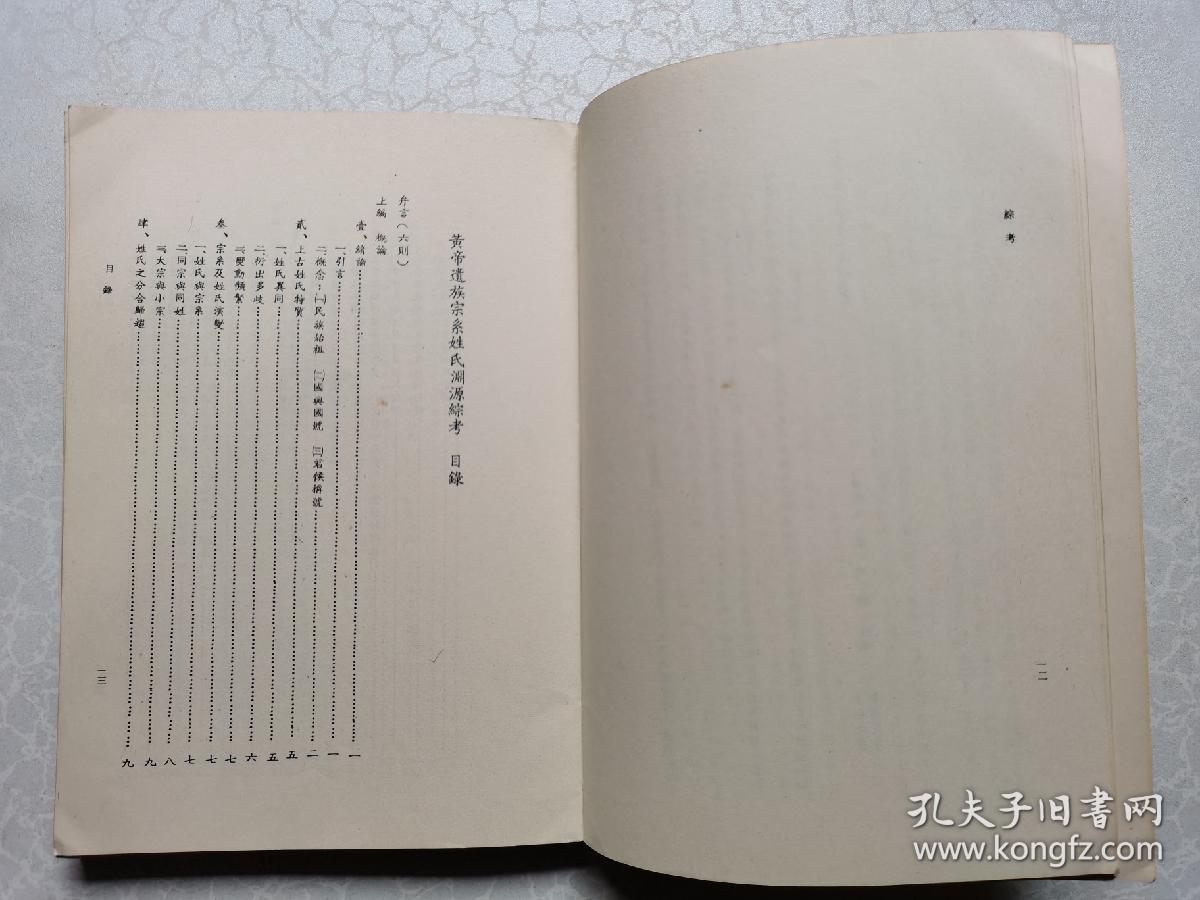 綜考
一二
黃帝遺族宗系姓氏淵源綜考 目錄
序言（六則）
上編 概論
壹、緒論……一
一、引言……一
二、概念：㈠民族始祖 ㈡國與國號 ㈢君侯稱號……二
貳、上古姓氏特質……五
一、姓氏異同……五
二、衍出多歧……六
三、變動頻繁……七
叁、宗系及姓氏演變……七
一、姓氏與宗系……七
二、同宗與同姓……八
三、大宗與小宗……九
肆、姓氏之分合歸趨……九
目錄
一三
孔夫子旧書网
www.kongfz.com